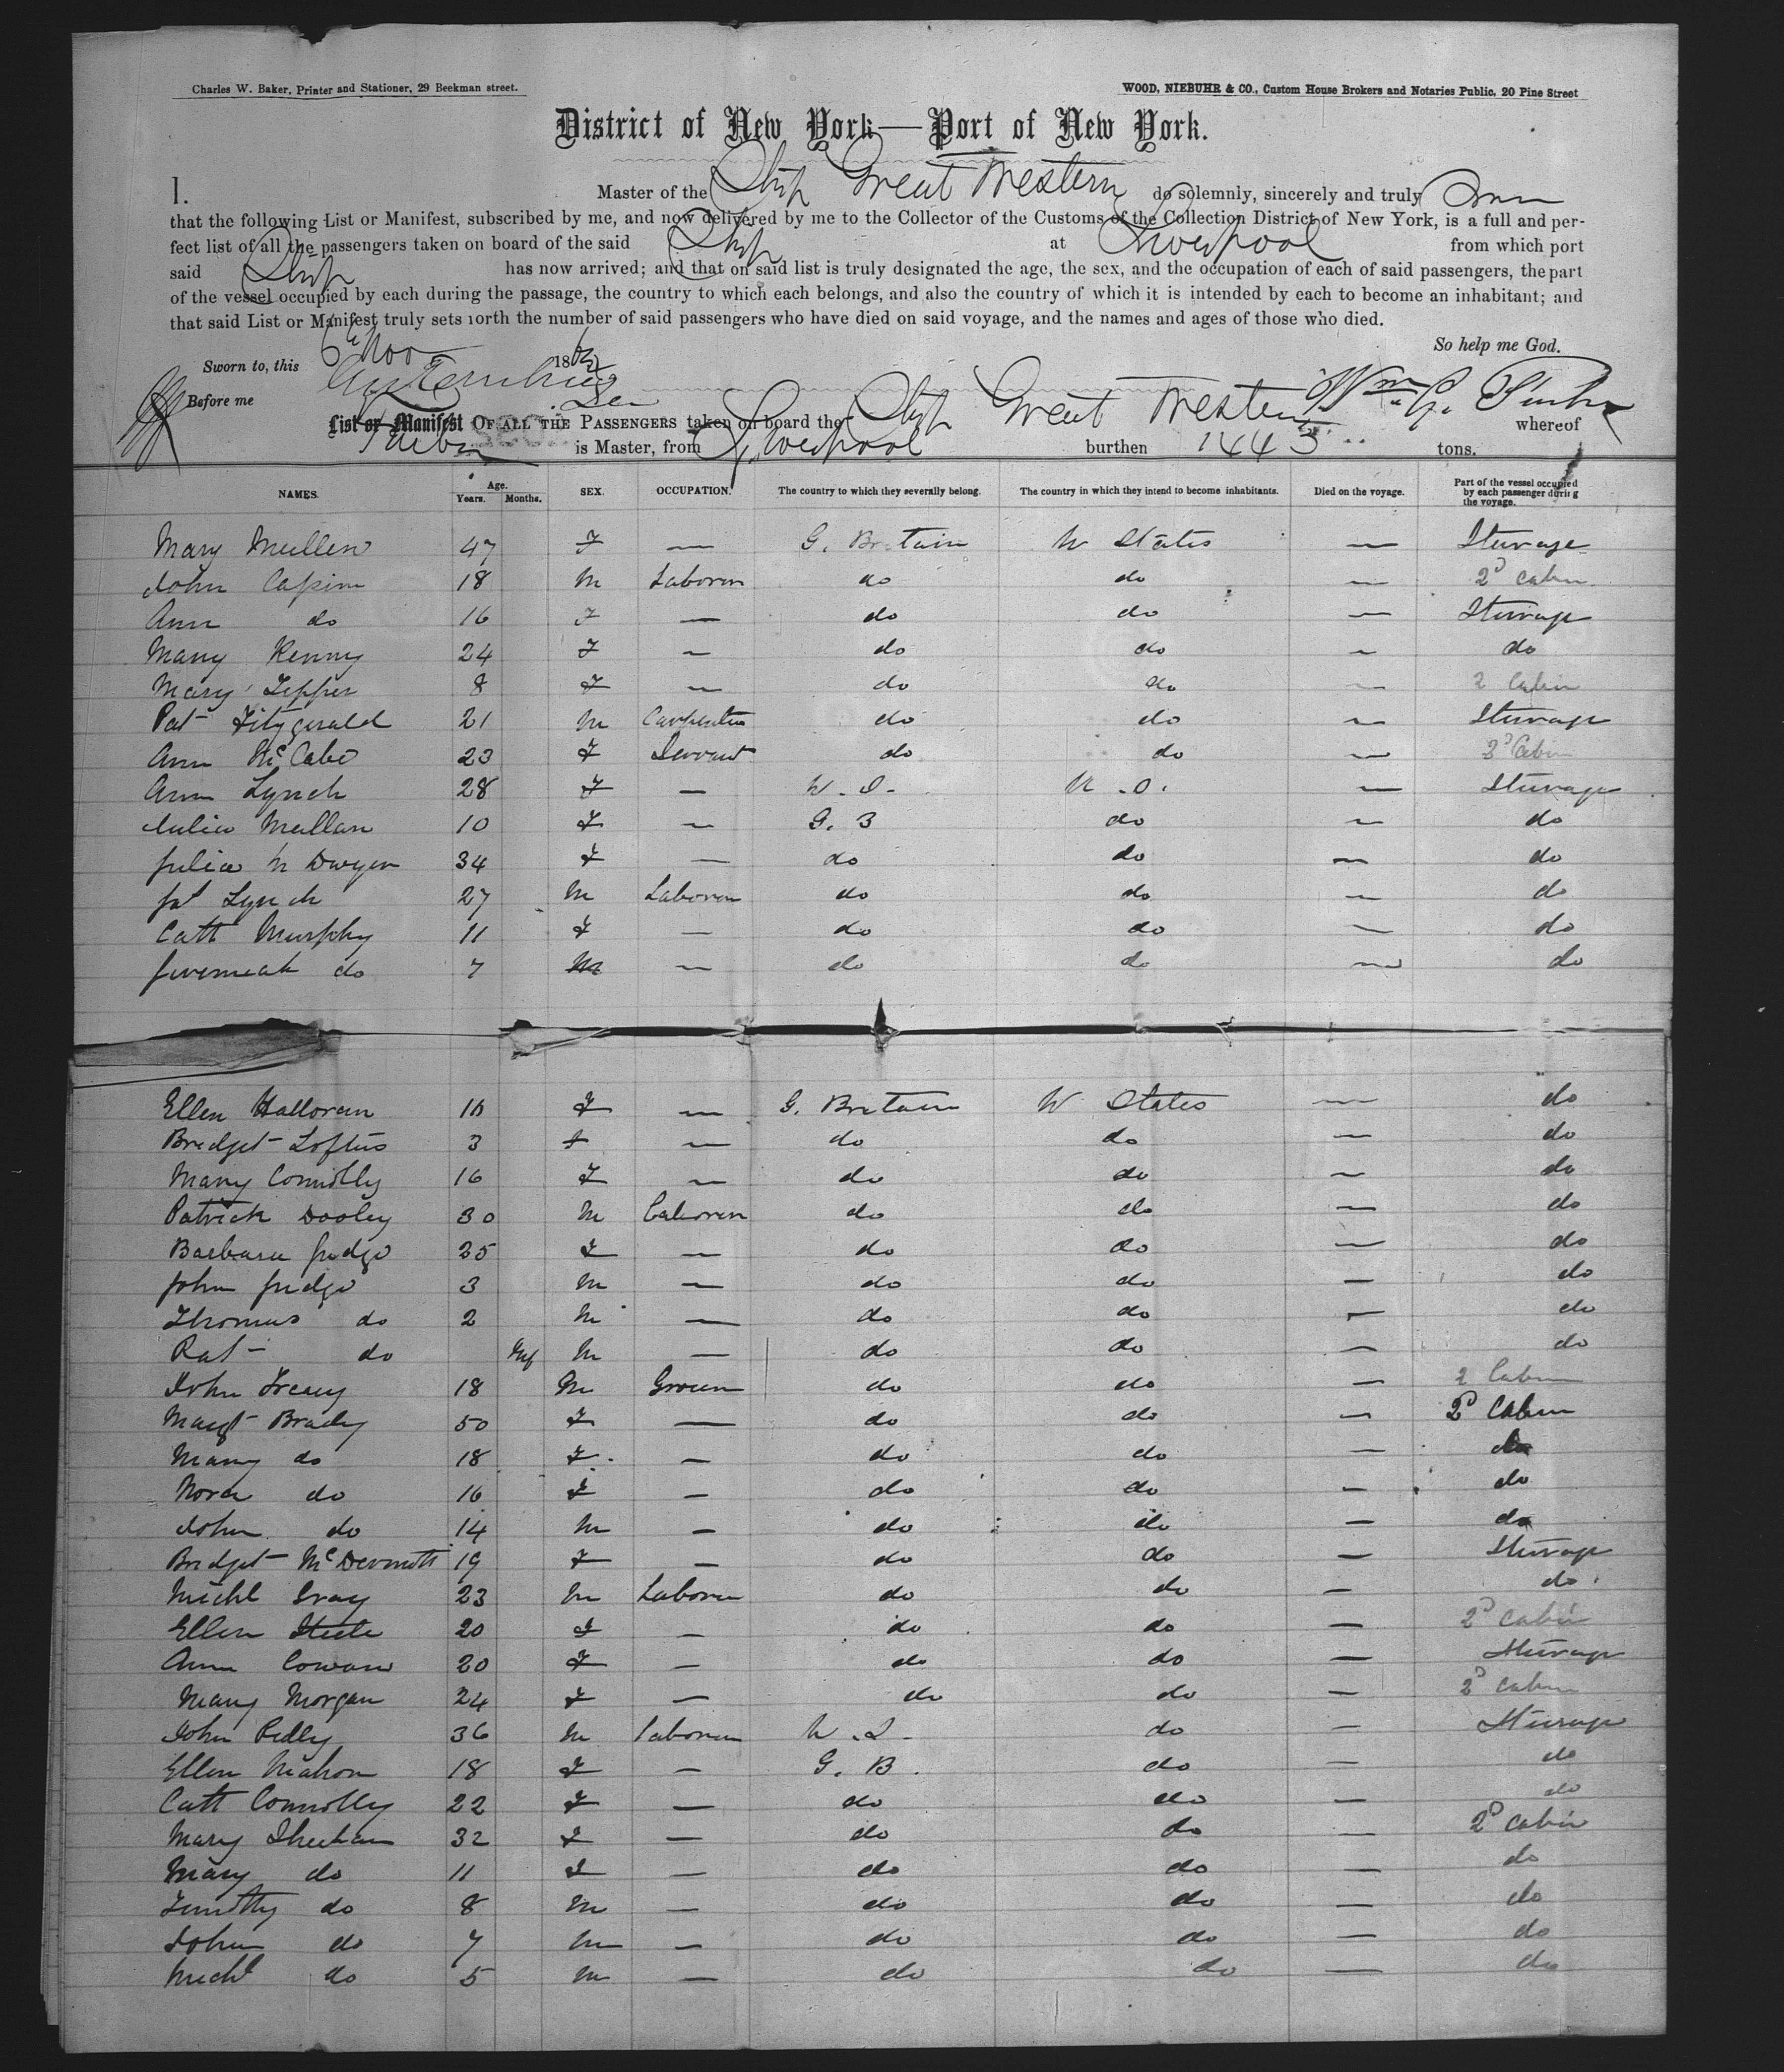 Charles W. Baker, Printer and Stationer, 29 Beekman street.
WOOD, NIEBUHR & CO., Custom House Brokers and Notaries Public, 20 Pine Street
District of New York—Port of New York.
I. Master of the Ship Great Western do solemnly, sincerely and truly
that the following List or Manifest, subscribed by me, and now delivered by me to the Collector of the Customs of the Collection District of New York, is a full and per-
fect list of all the passengers taken on board of the said Ship at Liverpool from which port
said Ship has now arrived; and that on said list is truly designated the age, the sex, and the occupation of each of said passengers, the part
of the vessel occupied by each during the passage, the country to which each belongs, and also the country of which it is intended by each to become an inhabitant; and
that said List or Manifest truly sets forth the number of said passengers who have died on said voyage, and the names and ages of those who died.
So help me God.
Sworn to, this 6th Nov 186
Before me
List or Manifest OF ALL THE PASSENGERS taken on board the Ship Great Western whereof
is Master, from Liverpool burthen 1443 tons.
NAMES. Age. Years. Months. SEX. OCCUPATION. The country to which they severally belong. The country in which they intend to become inhabitants. Died on the voyage. Part of the vessel occupied by each passenger during the voyage.
Mary Mullen 47 F — G. Britain U States — Steerage
John 18 M Laborer do do — 2d Cabin
Ann do 16 F — do do — Steerage
Mary Kenny 24 F — do do — do
Mary 8 F — do do — 2 Cabin
Pat Fitzgerald 21 M Carpenter do do — Steerage
Ann McCabe 23 F Servant do do — 2d Cabin
Ann Lynch 28 F — U.S. U.S. — Steerage
Julia Mullan 10 F — G. B do — do
Julia Dwyer 34 F — do do — do
Pat Lynch 27 M Laborer do do — do
Cath Murphy 11 F — do do — do
Jeremiah do 7 M — do do — do
Ellen Halloran F — G. Britain U States — do
Bridget Loftus 3 F — do do — do
Mary Connolly 16 F — do do — do
Patrick Dooley 30 M Laborer do do — do
Barbara Judge 25 F — do do — do
John Judge 3 M — do do — do
Thomas do 2 M — do do — do
Pat do Inf M — do do — do
John 18 M do do — 2 Cabin
Margt Brady 50 F — do do — 2d Cabin
Mary do 18 F — do do — do
Nora do 16 F — do do — do
John do 14 M — do do — do
Bridget McDermott 19 F — do do — Steerage
Michl Gray 23 M Laborer do do — do
Ellen Steele 20 F — do do — 2d Cabin
Ann Cowan 20 F — do do — Steerage
Mary Morgan 24 F — do do — 2d Cabin
John 36 M Laborer U.S. do — Steerage
Ellen Mahon 18 F — G. B. do — do
Cath Connolly 22 F — do do — do
Mary Sheehan 32 F — do do — 2d Cabin
Mary do 11 F — do do — do
Timothy do 8 M — do do — do
John do 7 M — do do — do
Michl do 5 M — do do — do